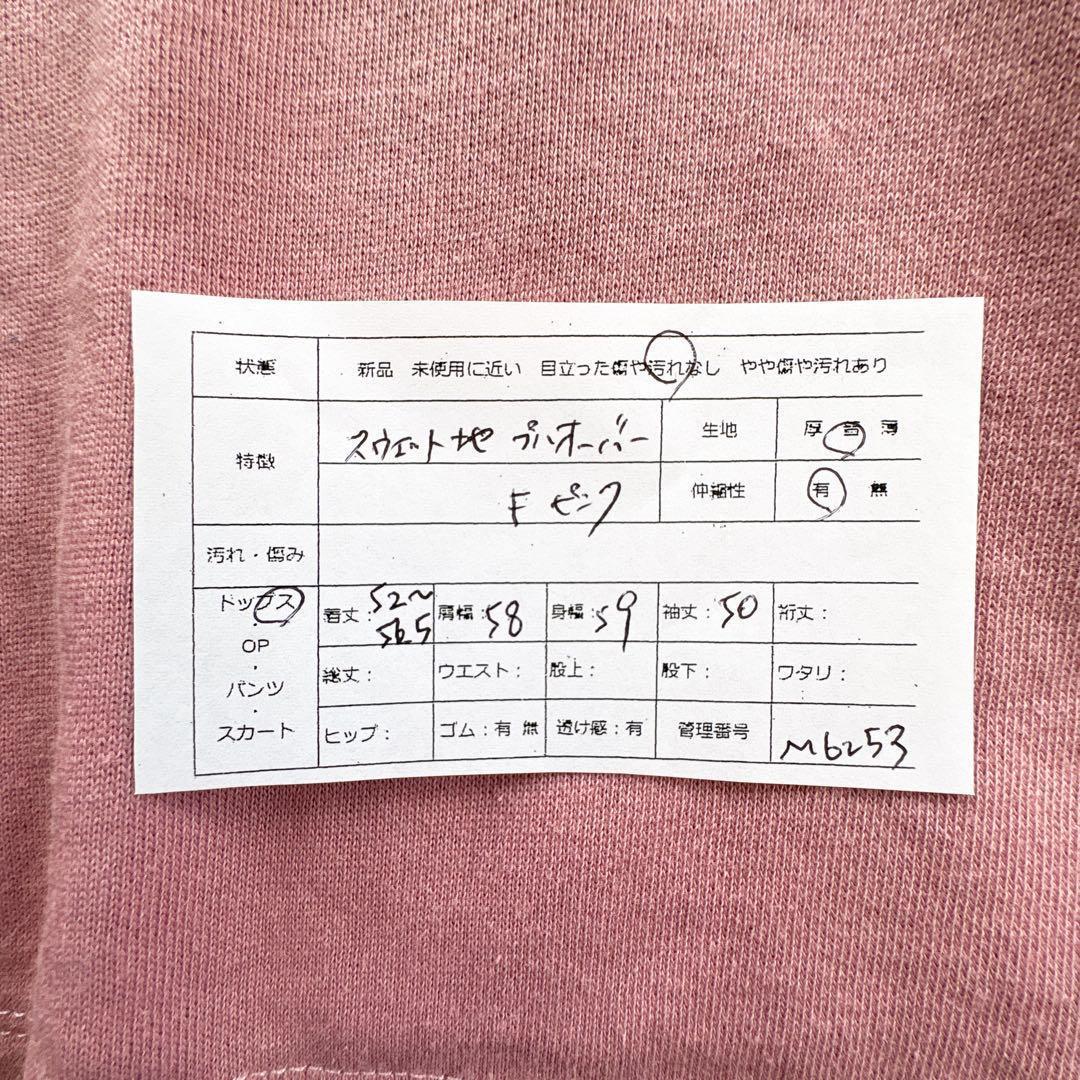 状態 新品 未使用に近い 目立った傷や汚れなし やや傷や汚れあり
特徴 スウェット地 プルオーバー 生地 厚 普 薄
F ピンク 伸縮性 有 無
汚れ・傷み
トップス 着丈:52〜56.5 肩幅:58 身幅:59 袖丈:50 裄丈:
・
OP
・
パンツ
・
スカート
総丈: ウエスト: 股上: 股下: ワタリ:
ヒップ: ゴム:有 無 透け感:有 管理番号 M6253